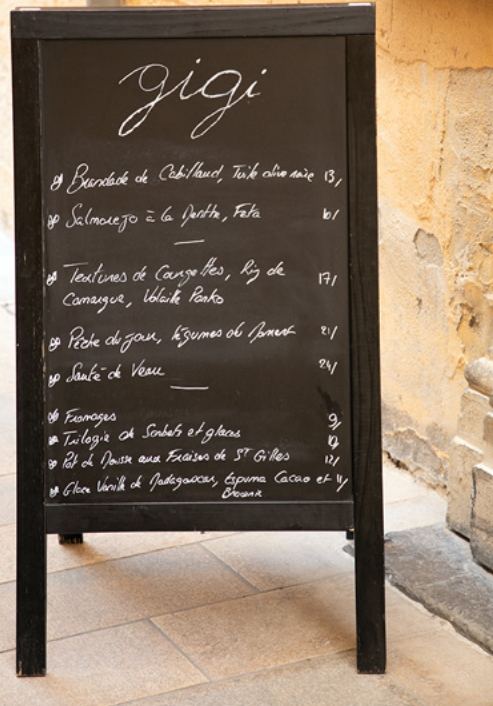 gigi
Brandade de Cabillaud, Tuile olive noire 13,
Salmorejo à la Menthe, Feta 10/
Textures de Courgettes, Riz de 17/
Camargue, Volaille Panko
Pêche du jour, légumes du Moment 21/
Sauté de Veau 24/
Fromages 9/
Trilogie de Sorbets et glaces
Pot de Mousse aux Fraises de St Gilles 12/
Glace Vanille de Madagascar, Espuma Cacao et 11/
Brownie